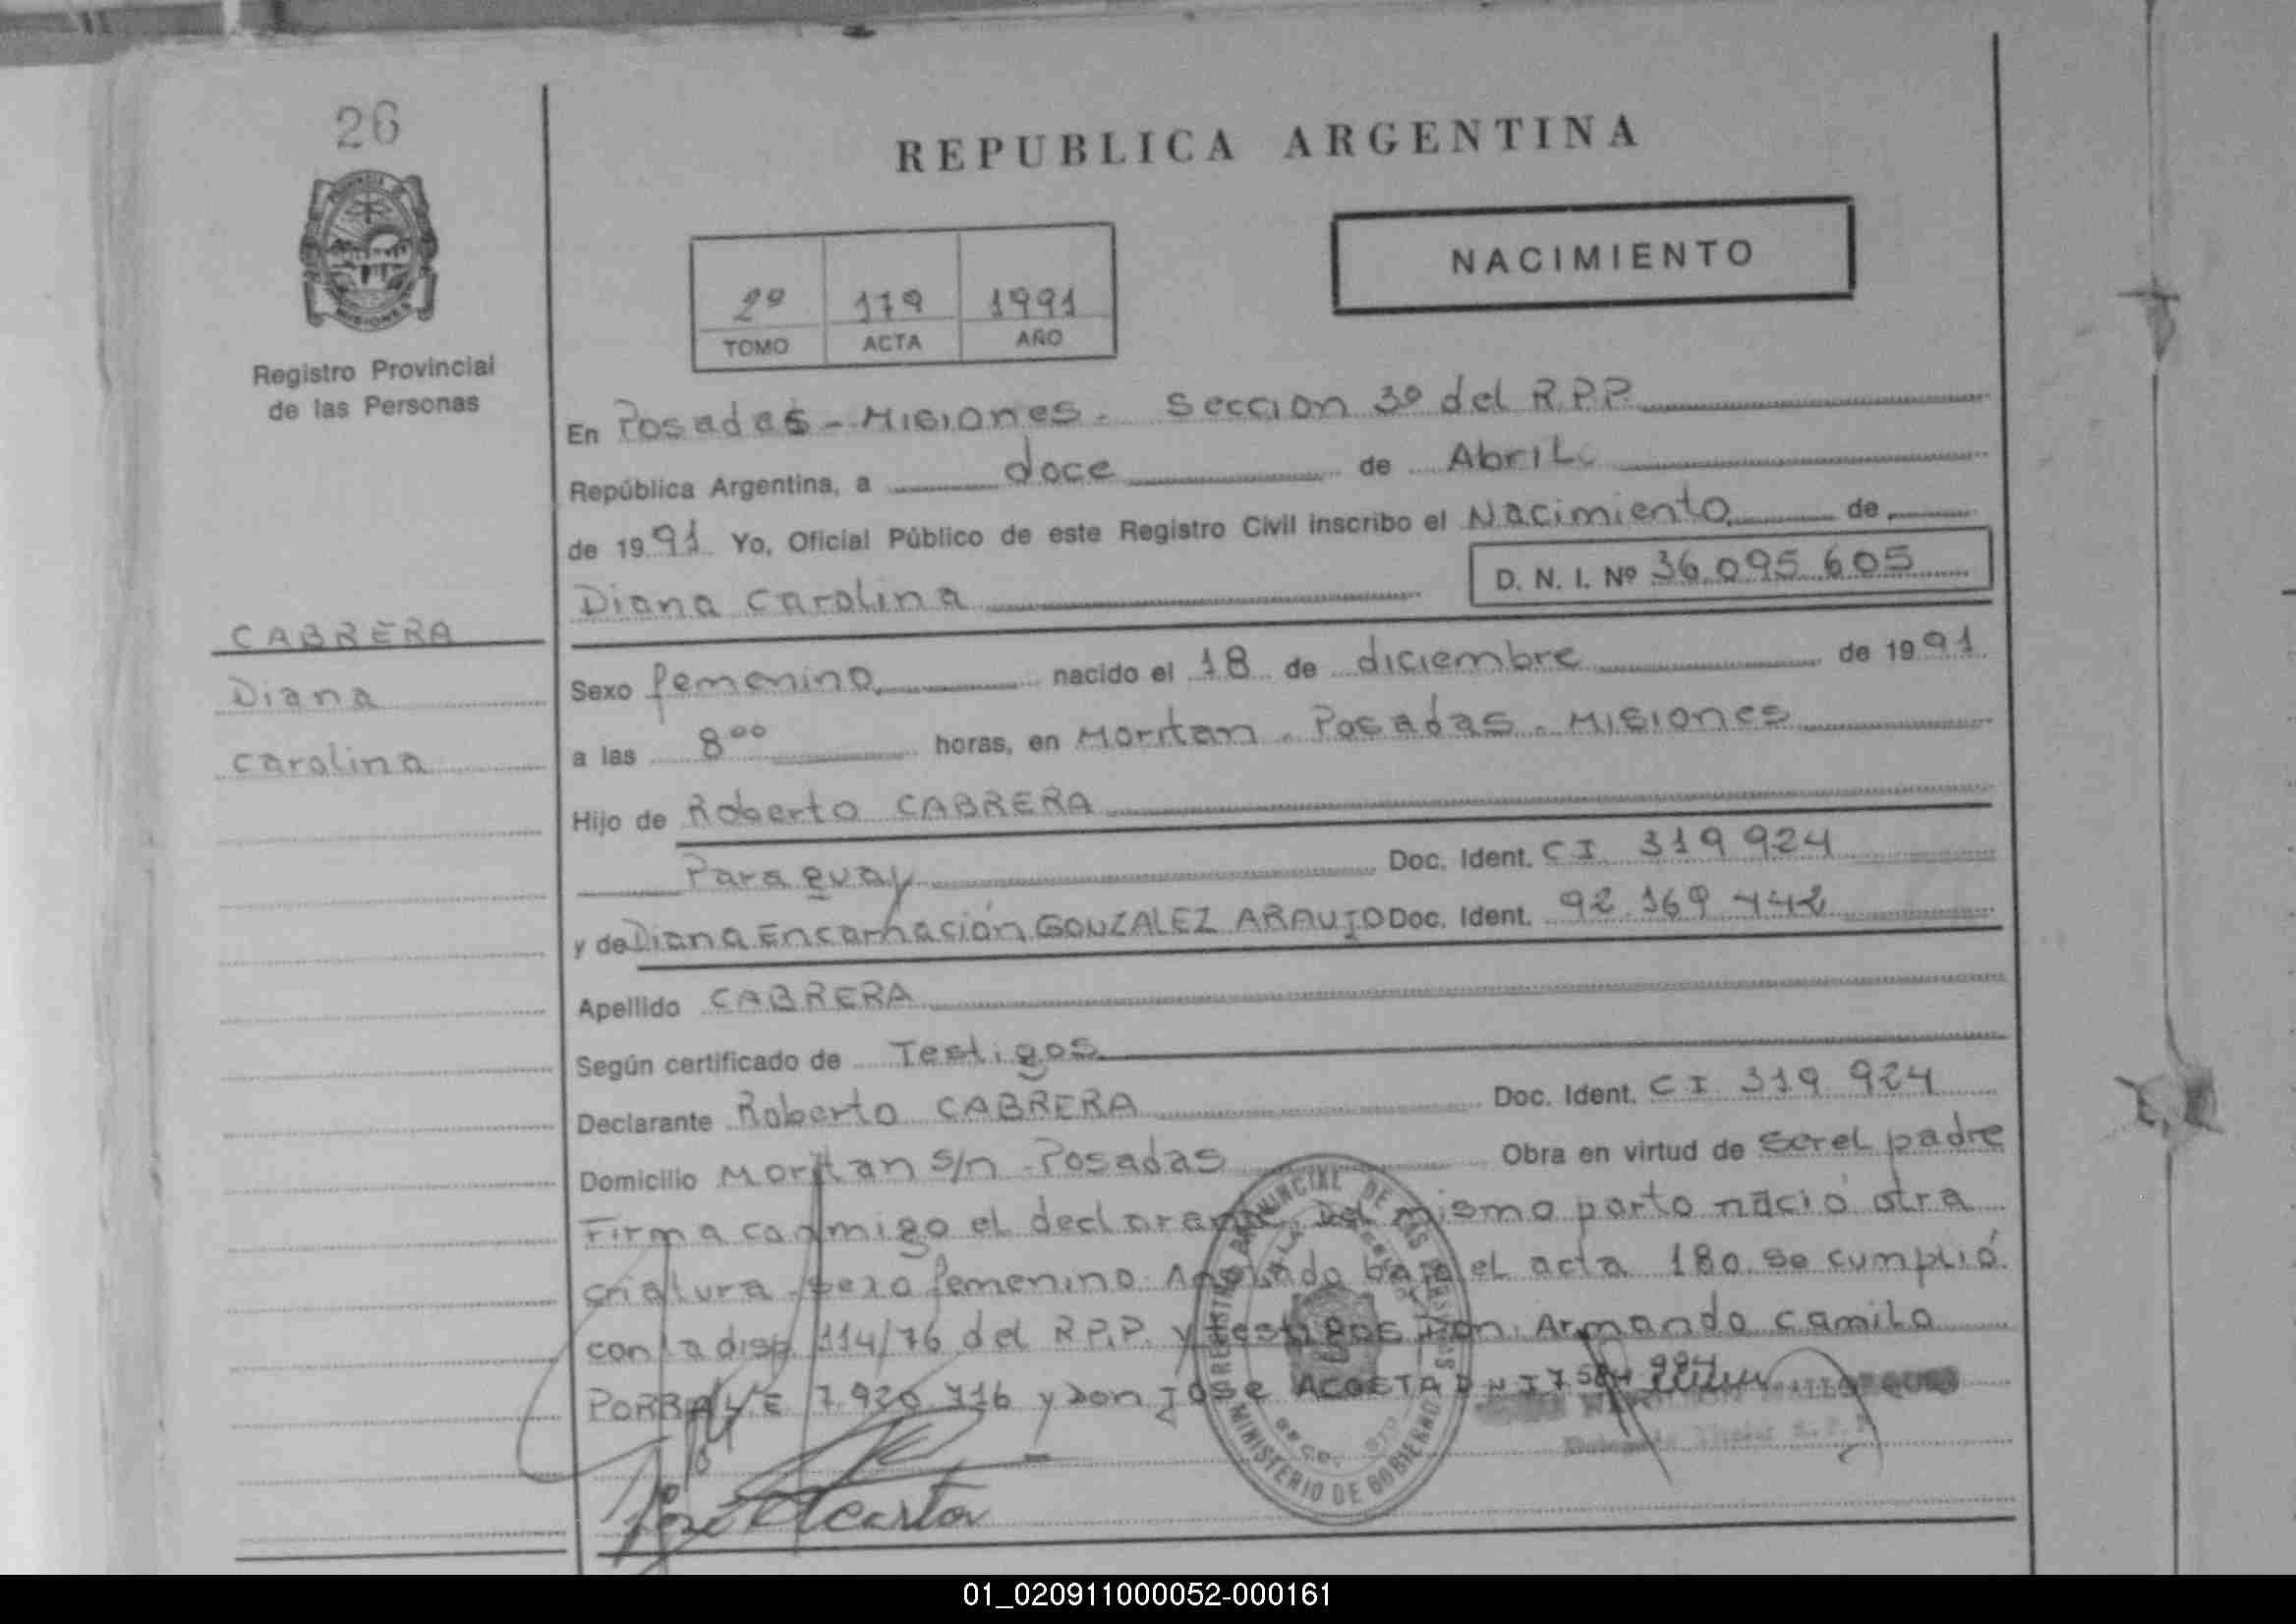 26
REPUBLICA ARGENTINA
NACIMIENTO
2º 179 1991
TOMO ACTA AÑO
MISIONES
Registro Provincial
de las Personas
En Posadas - Misiones. Seccion 3º del R.P.P.
República Argentina, a doce de Abril
de 1991 Yo, Oficial Público de este Registro Civil inscribo el Nacimiento de
Diana Carolina D. N. I. Nº 36.095.605
CABRERA
Diana
Carolina
Sexo femenino nacido el 18 de diciembre de 1991
a las 8⁰⁰ horas, en Moritan. Posadas - Misiones
Hijo de Roberto CABRERA
Paraguay Doc. Ident. CI 319 924
y de Diana Encarnación GONZALEZ ARAUJO Doc. Ident. 92.169 442
Apellido CABRERA
Según certificado de Testigos
Declarante Roberto CABRERA Doc. Ident. CI 319 924
Domicilio Moritan s/n - Posadas Obra en virtud de ser el padre
Firma conmigo el declarante. Del mismo parto nació otra
criatura sexo femenino. Anotado bajo el acta 180. se cumplió
con la disp. 114/76 del R.P.P. y testigos Don. Armando Camilo
L.E. 7.920 y Don José ACOSTA DNI 7.584 994
REGISTRO PROVINCIAL DE LAS PERSONAS
MINISTERIO DE GOBIERNO
José Acosta
01_020911000052-000161